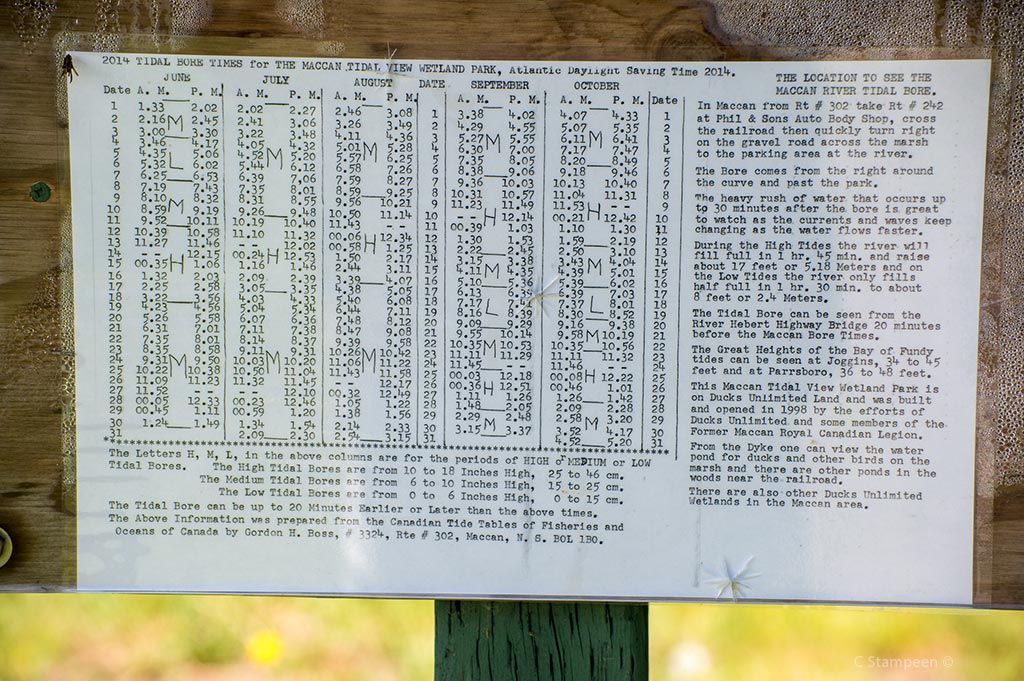 2014 TIDAL BORE TIMES for THE MACCAN TIDAL VIEW WETLAND PARK, Atlantic Daylight Saving Time 2014.
JUNE JULY AUGUST DATE SEPTEMBER OCTOBER
Date A. M. P. M. A. M. P. M. A. M. P. M. A. M. P. M. A. M. P. M. Date
1 1.33 2.02 2.02 2.27 2.46 3.08 1 3.38 4.02 4.07 4.33 1
2 2.16 M 2.45 2.41 3.06 3.26 3.49 2 4.29 4.55 5.07 5.35 2
3 3.00 3.30 3.22 3.48 4.11 4.36 3 5.27 M 5.55 6.11 M 6.41 3
4 3.46 4.17 4.05 4.32 5.01 M 5.28 4 6.30 7.00 7.17 7.47 4
5 4.35 L 5.06 4.52 M 5.20 5.57 6.25 5 7.35 8.05 8.20 8.49 5
6 5.32 6.02 5.44 6.12 6.58 7.26 6 8.38 9.06 9.18 9.46 6
7 6.25 6.53 6.39 7.06 7.59 8.27 7 9.36 10.03 10.13 10.40 7
8 7.19 7.43 7.35 8.01 8.59 9.25 8 10.31 10.57 11.04 11.31 8
9 8.10 M 8.32 8.31 8.55 9.56 10.21 9 11.23 11.49 11.53 H -- 9
10 8.59 9.19 9.26 9.48 10.50 11.14 10 -- H 12.14 00.21 12.42 10
11 9.50 10.10 10.19 10.40 11.43 -- 11 00.39 1.03 1.10 1.30 11
12 10.39 10.58 11.10 -- 00.06 H 12.34 12 1.30 1.53 1.59 2.19 12
13 11.27 11.46 -- 12.02 00.58 1.25 13 2.22 2.45 2.50 3.10 13
14 -- H 12.15 00.24 H 12.53 1.50 14 3.15 3.38 3.43 M 4.04 14
15 00.35 1.06 1.16 1.46 2.44 3.11 15 4.11 M 4.35 4.39 5.01 15
16 1.32 2.03 2.09 2.39 16 5.10 5.36 16
17 2.25 2.58 3.05 3.35 4.38 5.05 17 6.13 6.39 6.39 L 7.03 17
18 3.22 3.56 4.03 4.33 5.40 6.08 18 L 7.37 8.01 18
19 4.23 4.56 5.04 5.34 6.44 7.11 19 8.16 8.39 8.30 8.52 19
20 5.26 5.58 6.07 7.48 8.12 20 9.09 9.29 9.16 9.38 20
21 6.31 7.01 7.11 7.38 8.47 9.08 21 9.55 10.14 9.58 M 10.19 21
22 7.35 8.14 8.37 9.39 9.58 22 10.35 M 10.53 10.35 10.56 22
23 8.35 8.58 9.11 9.31 10.26 M 10.42 23 11.11 11.29 11.11 11.32 23
24 9.31 M 9.50 10.03 M 10.20 11.06 11.23 24 11.45 -- 11.46 -- 24
25 10.22 10.38 10.50 11.04 11.43 11.58 25 00.03 12.18 00.08 H 12.22 25
26 11.09 11.23 11.32 11.45 -- 12.17 26 00.36 H 12.51 00.46 1.01 26
27 11.52 -- -- 12.10 00.32 12.49 27 1.11 1.26 1.26 1.42 27
28 12.33 00.23 12.46 1.05 1.22 28 1.48 2.05 2.09 2.28 28
29 00.45 1.11 00.59 1.20 1.38 1.56 29 2.29 M 2.48 2.58 M 3.20 29
30 1.24 1.49 1.34 1.54 2.14 2.33 30 3.15 3.37 3.52 4.17 30
31 2.09 2.30 2.54 3.15 31 4.52 5.20 31
The Letters H, M, L, in the above columns are for the periods of HIGH or MEDIUM or LOW
Tidal Bores. The High Tidal Bores are from 10 to 18 Inches High, 25 to 46 cm.
The Medium Tidal Bores are from 6 to 10 Inches High, 15 to 25 cm.
The Low Tidal Bores are from 0 to 6 Inches High, 0 to 15 cm.
The Tidal Bore can be up to 20 Minutes Earlier or Later than the above times.
The Above Information was prepared from the Canadian Tide Tables of Fisheries and
Oceans of Canada by Gordon H. Boss, # 3324, Rte # 302, Maccan, N. S. B0L 1B0.
THE LOCATION TO SEE THE
MACCAN RIVER TIDAL BORE.
In Maccan from Rt # 302 take Rt # 242
at Phil & Sons Auto Body Shop, cross
the railroad then quickly turn right
on the gravel road across the marsh
to the parking area at the river.
The Bore comes from the right around
the curve and past the park.
The heavy rush of water that occurs up
to 30 minutes after the bore is great
to watch as the currents and waves keep
changing as the water flows faster.
During the High Tides the river will
fill full in 1 hr. 45 min. and raise
about 17 feet or 5.18 Meters and on
the Low Tides the river only fills
half full in 1 hr. 30 min. to about
8 feet or 2.4 Meters.
The Tidal Bore can be seen from the
River Hebert Highway Bridge 20 minutes
before the Maccan Bore Times.
The Great Heights of the Bay of Fundy
tides can be seen at Joggins, 34 to 45
feet and at Parrsboro, 36 to 48 feet.
This Maccan Tidal View Wetland Park is
on Ducks Unlimited Land and was built
and opened in 1998 by the efforts of
Ducks Unlimited and some members of the
Former Maccan Royal Canadian Legion.
From the Dyke one can view the water
pond for ducks and other birds on the
marsh and there are other ponds in the
woods near the railroad.
There are also other Ducks Unlimited
Wetlands in the Maccan area.
C Stampeen ©